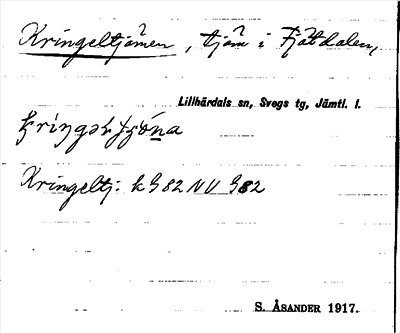 Kringeltjärnen, tjärn i Fjätdalen,
Lillhärdals sn, Svegs tg, Jämtl. l.
Kringeltj. k G82 NV G82
S. ÅSANDER 1917.